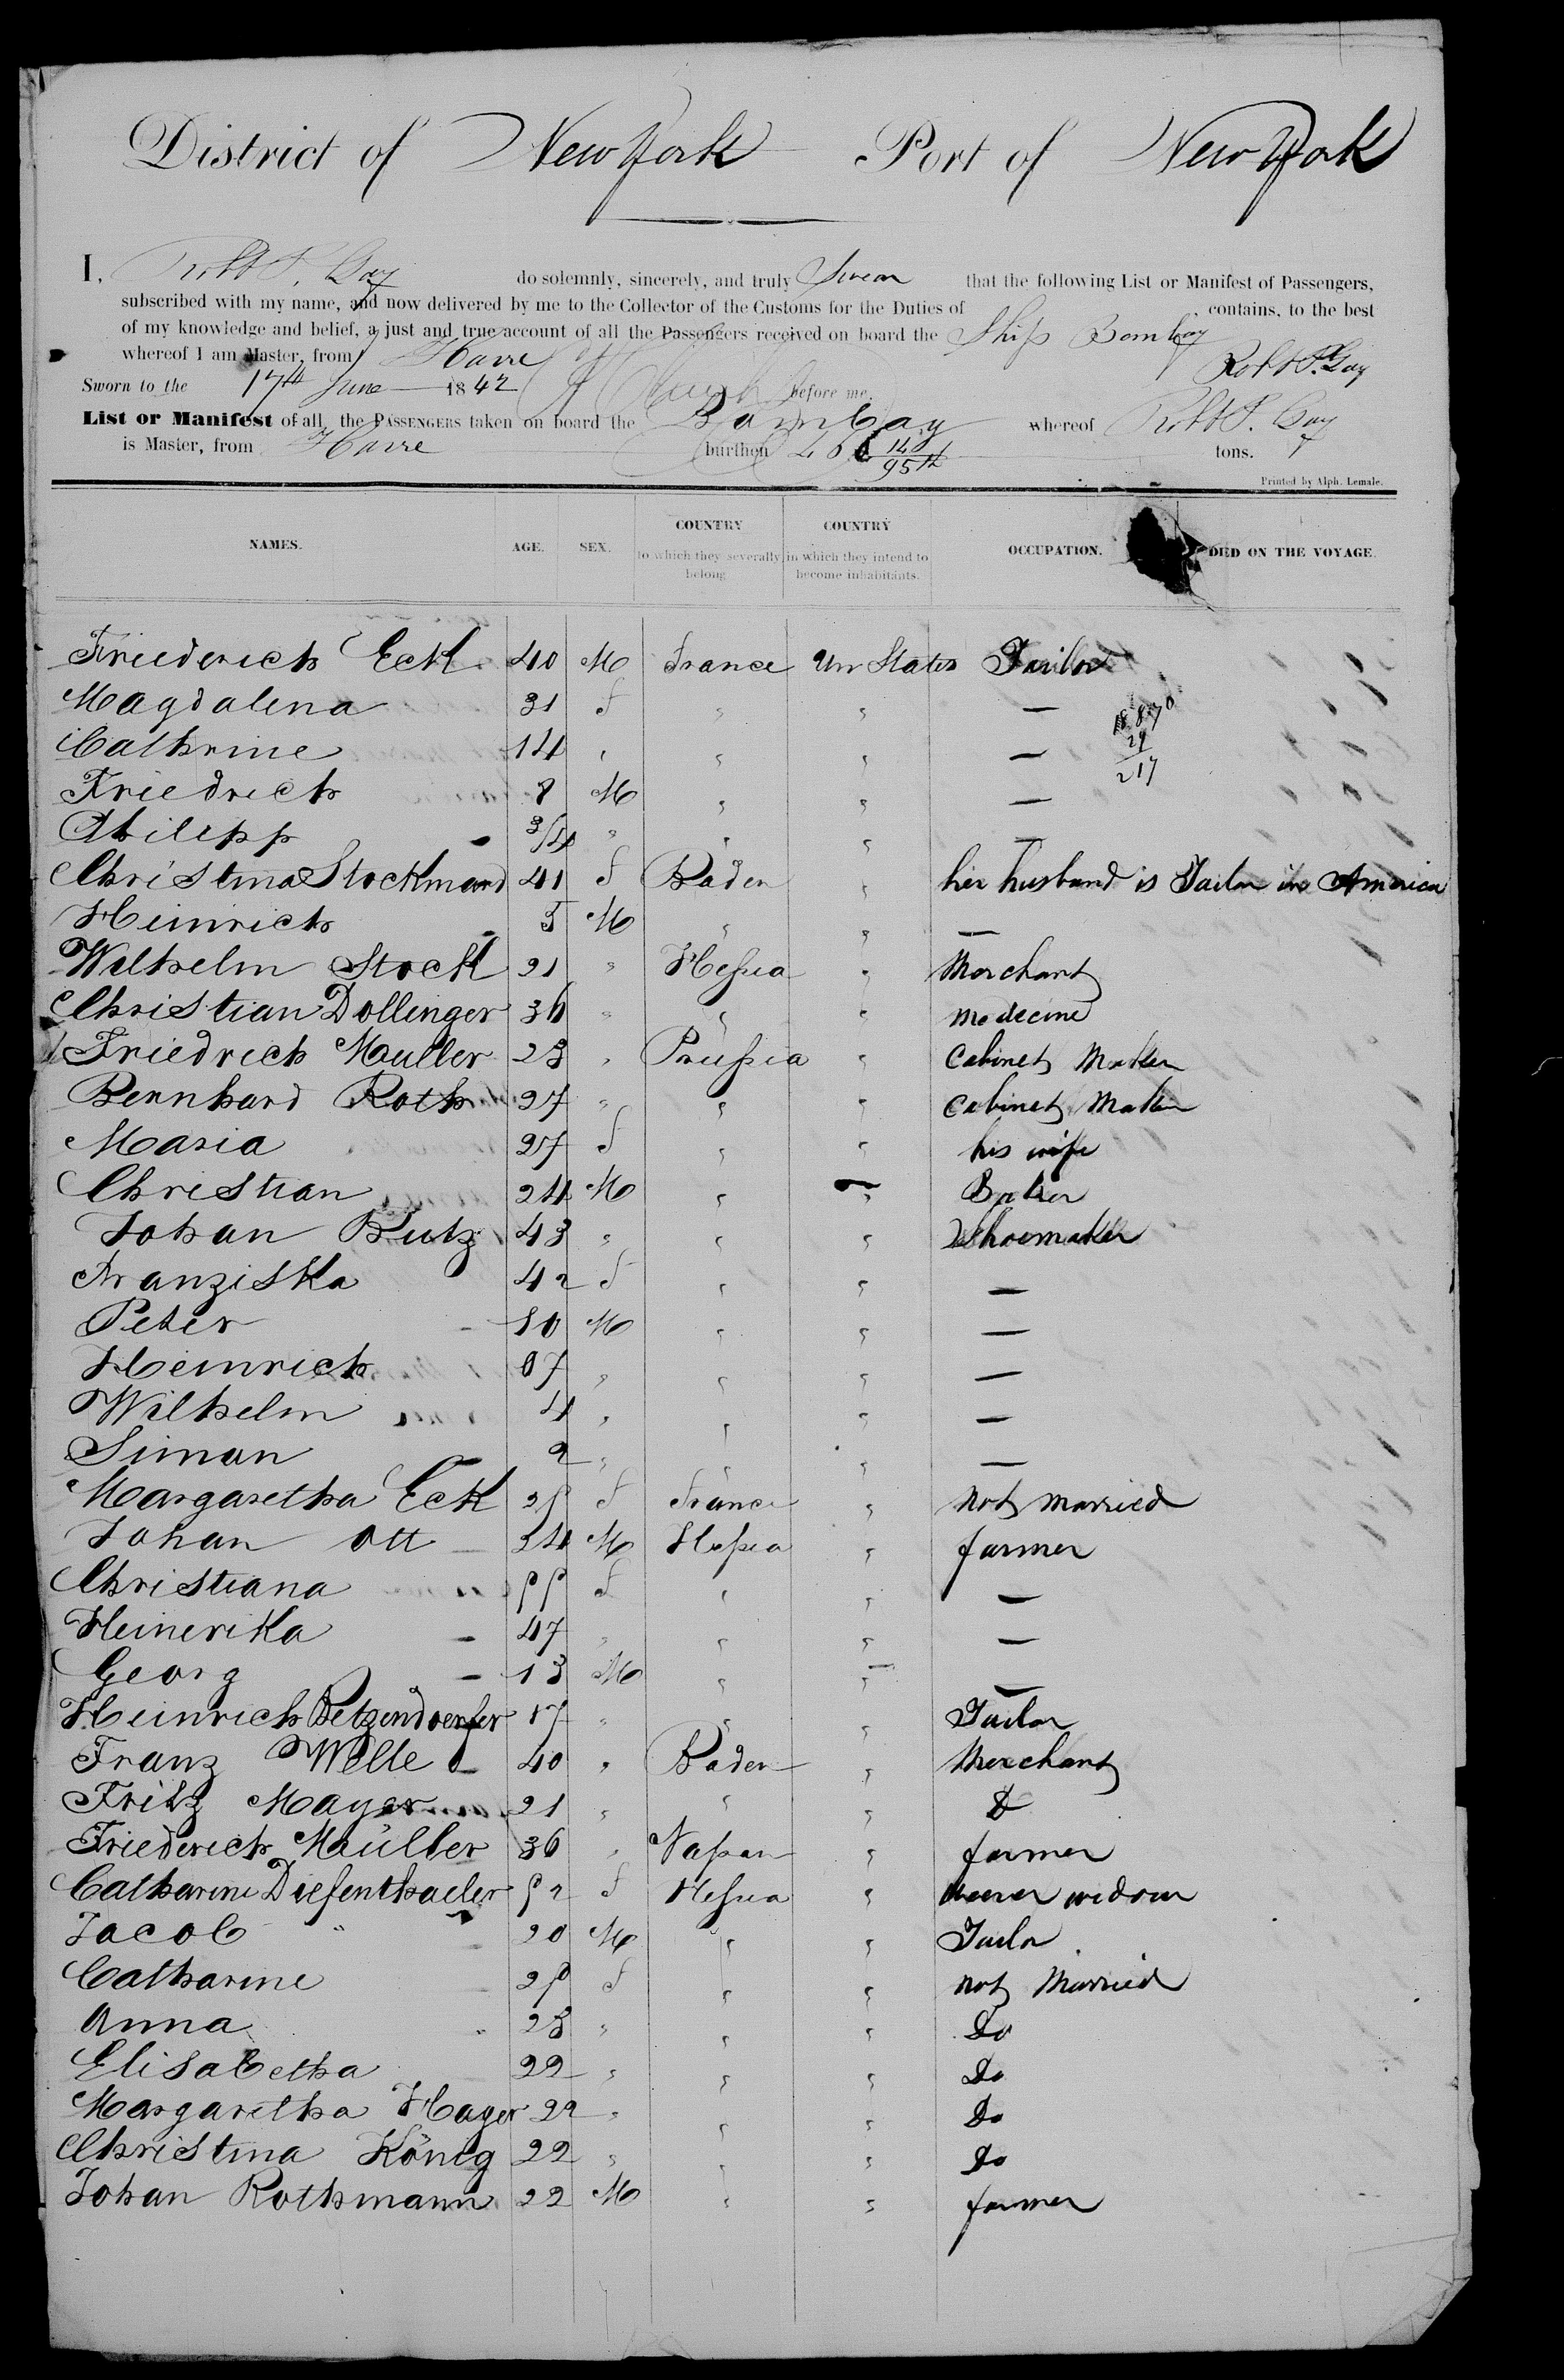 District of New York Port of New York
I, Robt P. Gay do solemnly, sincerely, and truly Swear that the following List or Manifest of Passengers,
subscribed with my name, and now delivered by me to the Collector of the Customs for the Duties of , contains, to the best
of my knowledge and belief, a just and true account of all the Passengers received on board the Ship Bombay
whereof I am Master, from Havre
Robt P. Gay
Sworn to the 17th June 1842 before me.
List or Manifest of all the PASSENGERS taken on board the Bombay whereof Robt P. Gay
is Master, from Havre burthen tons.
Printed by Alph. Lemale.
NAMES. AGE. SEX. COUNTRY to which they severally belong COUNTRY in which they intend to become inhabitants. OCCUPATION. DIED ON THE VOYAGE.
Friederich Eck 40 M France Un States Tailor
Magdalena 31 f " " —
Cathrine 14 " " " —
Friedrich 8 M " " —
Philipp 3/4 " " " —
Christina Stockmand 41 f Baden " her husband is Tailor in America
Heinrich 5 M " " —
Wilhelm Stock 21 " Hessia " Merchant
Christian Dollinger 36 " " " Medecine
Friedrich Muller 23 " Prussia " Cabinet Maker
Bernhard Roth 27 " " " Cabinet Maker
Maria 27 f " " his wife
Christian 24 M " " Baker
Johan Butz 43 " " " Shoemaker
Franziska 42 f " " —
Peter 10 M " " —
Heinrich 07 " " " —
Wilhelm 4 " " " —
Siman 2 " " " —
Margaretha Eck f France " not married
Johan Ott 54 M Hessia " farmer
Christiana 55 f " " —
Heinerika 47 " " " —
Georg 13 M " " —
Heinrich Betzendoerfer 17 " " " Tailor
Franz Welle 40 " Baden " Merchant
Fritz Mayer 21 " " " D
Friederich Maüller 36 " Nassau " farmer
Catharine Diefenthaeler 52 f Hessia " widow
Jacob " 20 M " " Tailor
Catharine f " " not Married
Anna 23 " " " Do
Elisabetha 22 " " " Do
Margaretha Hager 22 " " " Do
Christina König 22 " " " Do
Johan Rothmann 22 M " " farmer